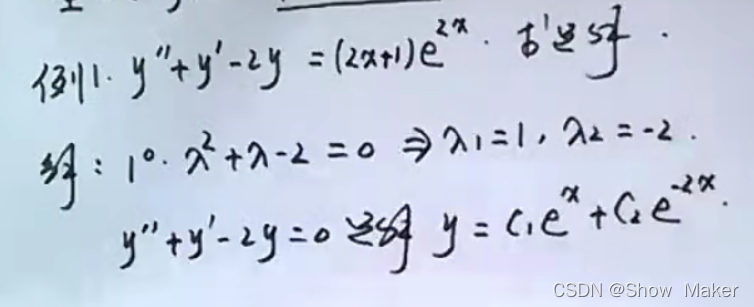 例1. y''+y'-2y =(2x+1)e^{2x}. 求通解.
解: 1°. λ²+λ-2=0 ⇒ λ₁=1, λ₂=-2.
y''+y'-2y=0 通解 y = C₁e^{x}+C₂e^{-2x}.
CSDN @Show_Maker